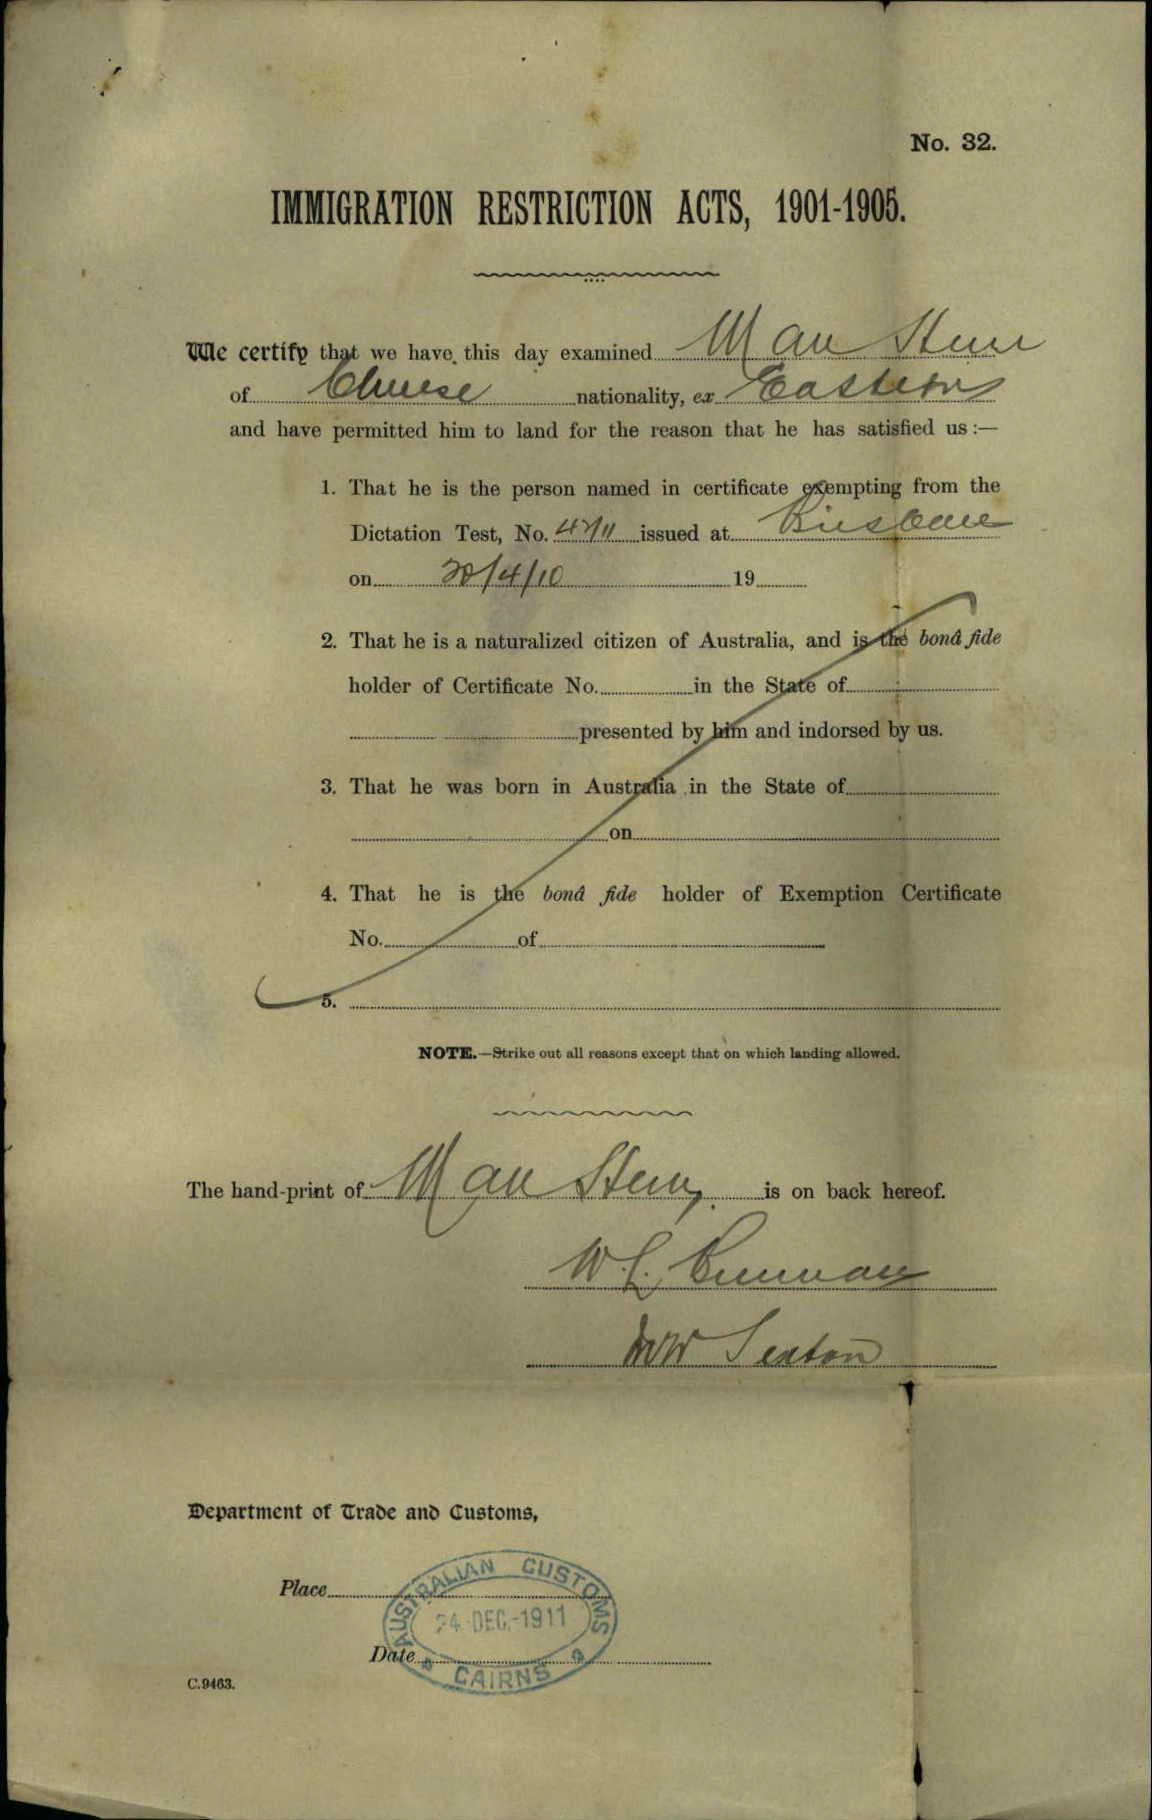 No. 32.
IMMIGRATION RESTRICTION ACTS, 1901-1905.
We certify that we have this day examined Man
of Chinese nationality, ex Eastern
and have permitted him to land for the reason that he has satisfied us:—
1. That he is the person named in certificate exempting from the
Dictation Test, No. issued at Brisbane
on /4/10 19
2. That he is a naturalized citizen of Australia, and is the bonâ fide
holder of Certificate No. in the State of
presented by him and indorsed by us.
3. That he was born in Australia in the State of
on
4. That he is the bonâ fide holder of Exemption Certificate
No. of
5.
NOTE.—Strike out all reasons except that on which landing allowed.
The hand-print of Man is on back hereof.
W.
Sexton
Department of Trade and Customs,
Place
AUSTRALIAN CUSTOMS
24 DEC.-1911
Date
CAIRNS
C.9463.